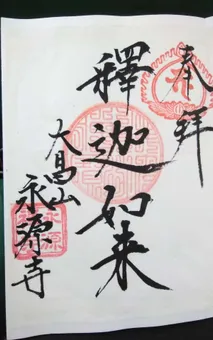 奉拝
釋迦如来
大高山
永源寺